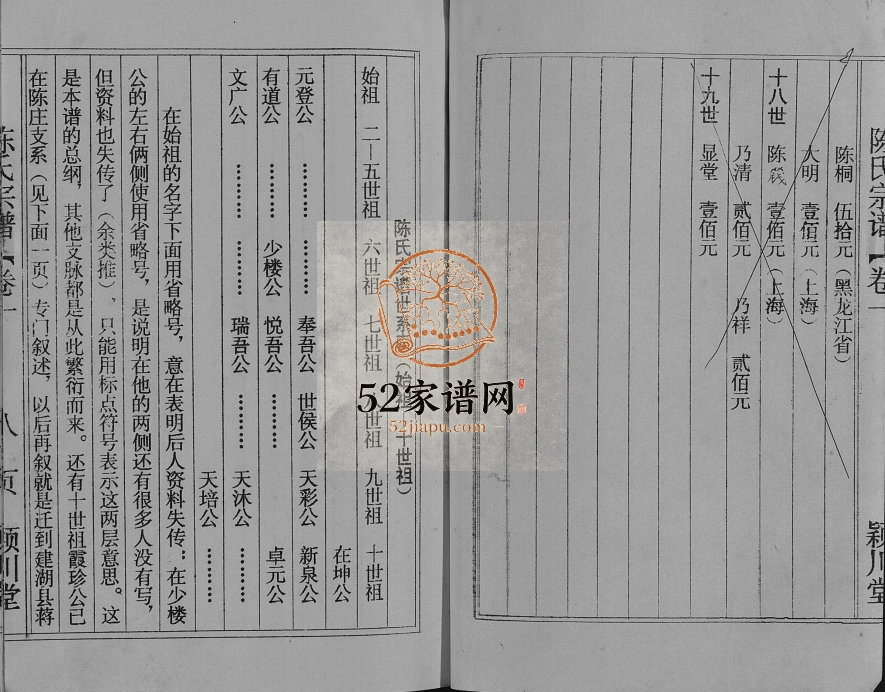 陈氏宗谱【卷一
颖川堂
陈桐 伍拾元（黑龙江省）
大明 壹佰元（上海）
十八世 陈 壹佰元（上海）
乃清 贰佰元 乃祥 贰佰元
十九世 显堂 壹佰元
陈氏宗谱世系 （始祖 十世祖）
始祖 二－五世祖 六世祖 七世祖 世祖 九世祖 十世祖
在坤公
元登公 ……… 奉吾公 世侯公 天彩公 新泉公
有道公 ……… 少楼公 悦吾公 ……… 卓元公
文广公 ……… ……… 瑞吾公 ……… 天沐公 ………
天培公 ………
在始祖的名字下面用省略号，意在表明后人资料失传；在少楼
公的左右俩侧使用省略号，是说明在他的两侧还有很多人没有写，
但资料也失传了（余类推），只能用标点符号表示这两层意思。这
是本谱的总纲，其他支脉都是从此繁衍而来。还有十世祖霞珍公已
在陈庄支系（见下面一页）专门叙述，以后再叙就是迁到建湖县蒋
陈氏宗谱【卷一
八页
颖川堂
52家谱网
52jiapu.com